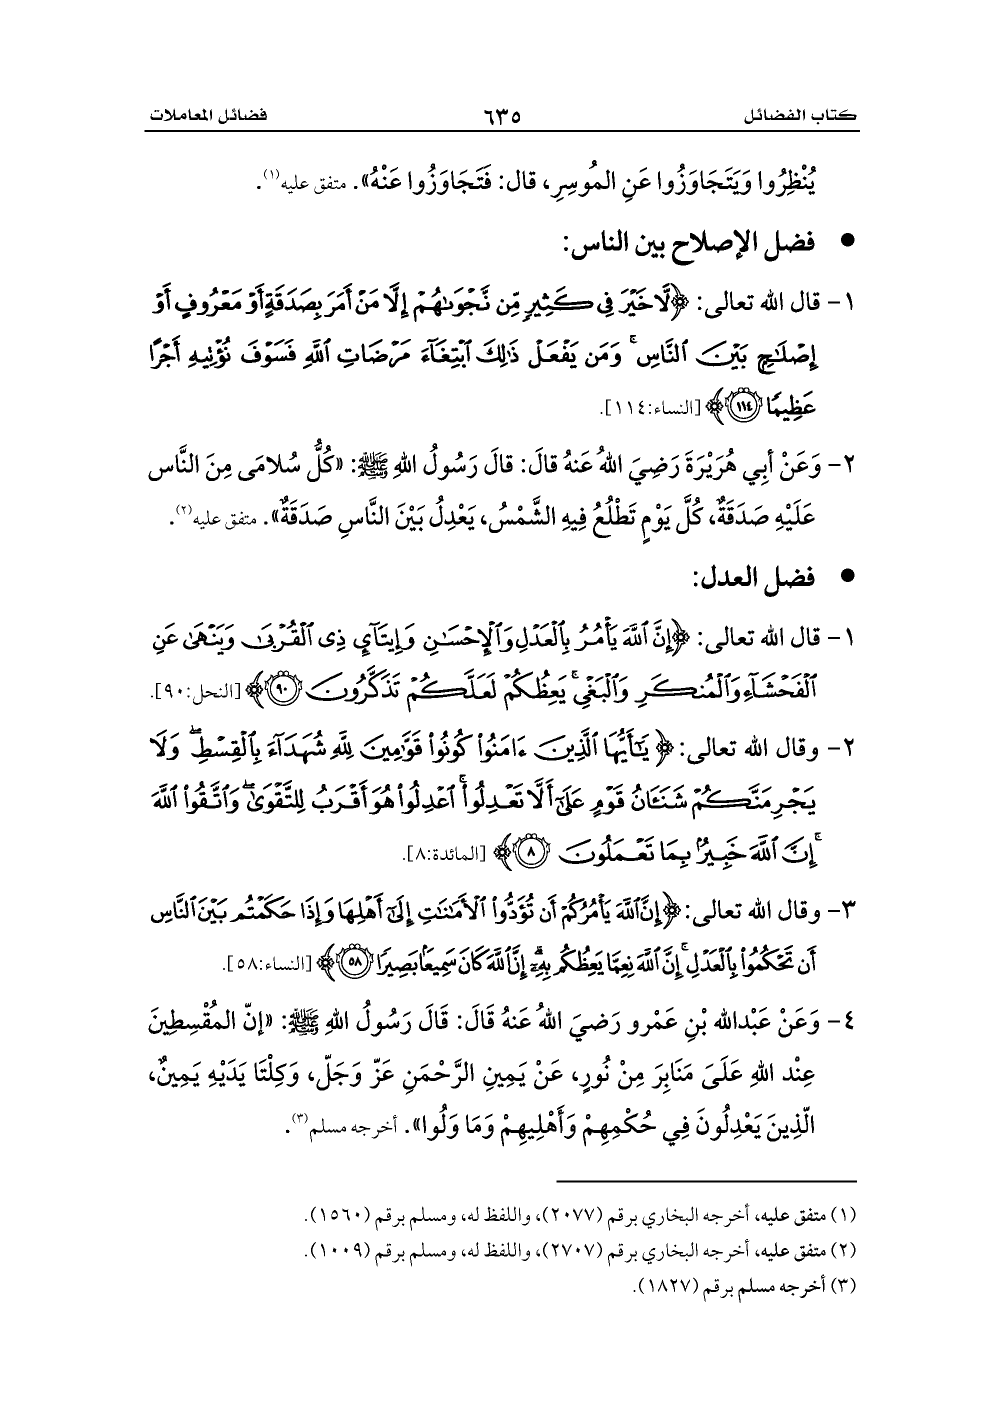 كتاب الفضائل ٦٣٥ فضائل المعاملات
يُنْظِرُوا وَيَتَجَاوَزُوا عَنِ المُوسِرِ، قال: فَتَجَاوَزُوا عَنْهُ». متفق عليه(١).
● فضل الإصلاح بين الناس:
١- قال الله تعالى: ﴿لَّا خَيْرَ فِي كَثِيرٍ مِّن نَّجْوَىٰهُمْ إِلَّا مَنْ أَمَرَ بِصَدَقَةٍ أَوْ مَعْرُوفٍ أَوْ
إِصْلَٰحٍۭ بَيْنَ ٱلنَّاسِ ۚ وَمَن يَفْعَلْ ذَٰلِكَ ٱبْتِغَآءَ مَرْضَاتِ ٱللَّهِ فَسَوْفَ نُؤْتِيهِ أَجْرًا
عَظِيمًا ١١٤﴾ [النساء:١١٤].
٢- وَعَنْ أَبِي هُرَيْرَةَ رَضِيَ اللهُ عَنهُ قالَ: قالَ رَسُولُ اللهِ ﷺ: «كُلُّ سُلامَى مِنَ النَّاس
عَلَيْهِ صَدَقَةٌ، كُلَّ يَوْمٍ تَطْلُعُ فِيهِ الشَّمْسُ، يَعْدِلُ بَيْنَ النَّاسِ صَدَقَةٌ». متفق عليه(٢).
● فضل العدل:
١- قال الله تعالى: ﴿إِنَّ ٱللَّهَ يَأْمُرُ بِٱلْعَدْلِ وَٱلْإِحْسَٰنِ وَإِيتَآيِٕ ذِي ٱلْقُرْبَىٰ وَيَنْهَىٰ عَنِ
ٱلْفَحْشَآءِ وَٱلْمُنكَرِ وَٱلْبَغْيِ ۚ يَعِظُكُمْ لَعَلَّكُمْ تَذَكَّرُونَ ٩٠﴾ [النحل:٩٠].
٢- وقال الله تعالى: ﴿يَٰٓأَيُّهَا ٱلَّذِينَ ءَامَنُوا۟ كُونُوا۟ قَوَّٰمِينَ لِلَّهِ شُهَدَآءَ بِٱلْقِسْطِ ۖ وَلَا
يَجْرِمَنَّكُمْ شَنَـَٔانُ قَوْمٍ عَلَىٰٓ أَلَّا تَعْدِلُوا۟ ۚ ٱعْدِلُوا۟ هُوَ أَقْرَبُ لِلتَّقْوَىٰ ۖ وَٱتَّقُوا۟ ٱللَّهَ
ۚ إِنَّ ٱللَّهَ خَبِيرٌۢ بِمَا تَعْمَلُونَ ٨﴾ [المائدة:٨].
٣- وقال الله تعالى: ﴿إِنَّ ٱللَّهَ يَأْمُرُكُمْ أَن تُؤَدُّوا۟ ٱلْأَمَٰنَٰتِ إِلَىٰٓ أَهْلِهَا وَإِذَا حَكَمْتُم بَيْنَ ٱلنَّاسِ
أَن تَحْكُمُوا۟ بِٱلْعَدْلِ ۚ إِنَّ ٱللَّهَ نِعِمَّا يَعِظُكُم بِهِۦٓ ۗ إِنَّ ٱللَّهَ كَانَ سَمِيعًۢا بَصِيرًا ٥٨﴾ [النساء:٥٨].
٤- وَعَنْ عَبْدالله بْنِ عَمْرو رَضيَ اللهُ عَنهُ قَالَ: قَالَ رَسُولُ اللهِ ﷺ: «إنّ المُقْسِطِينَ
عِنْد اللهِ عَلَىَ مَنَابِرَ مِنْ نُورٍ، عَنْ يَمِينِ الرَّحْمَنِ عَزّ وَجَلّ، وَكِلْتَا يَدَيْهِ يَمِينٌ،
الّذِينَ يَعْدِلُونَ فِي حُكْمِهِمْ وَأَهْلِيهِمْ وَمَا وَلُوا». أخرجه مسلم(٣).
(١) متفق عليه، أخرجه البخاري برقم (٢٠٧٧)، واللفظ له، ومسلم برقم (١٥٦٠).
(٢) متفق عليه، أخرجه البخاري برقم (٢٧٠٧)، واللفظ له، ومسلم برقم (١٠٠٩).
(٣) أخرجه مسلم برقم (١٨٢٧).